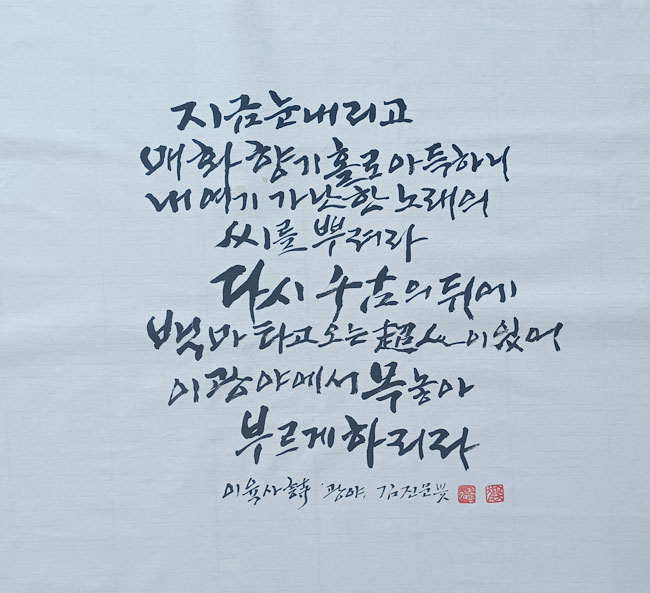 지금 눈 내리고
매화 향기 홀로 아득하니
내 여기 가난한 노래의
씨를 뿌려라
다시 千古의 뒤에
백마 타고 오는 超人이 있어
이 광야에서 목놓아
부르게 하리라
이육사 詩 '광야' 김진문 붓